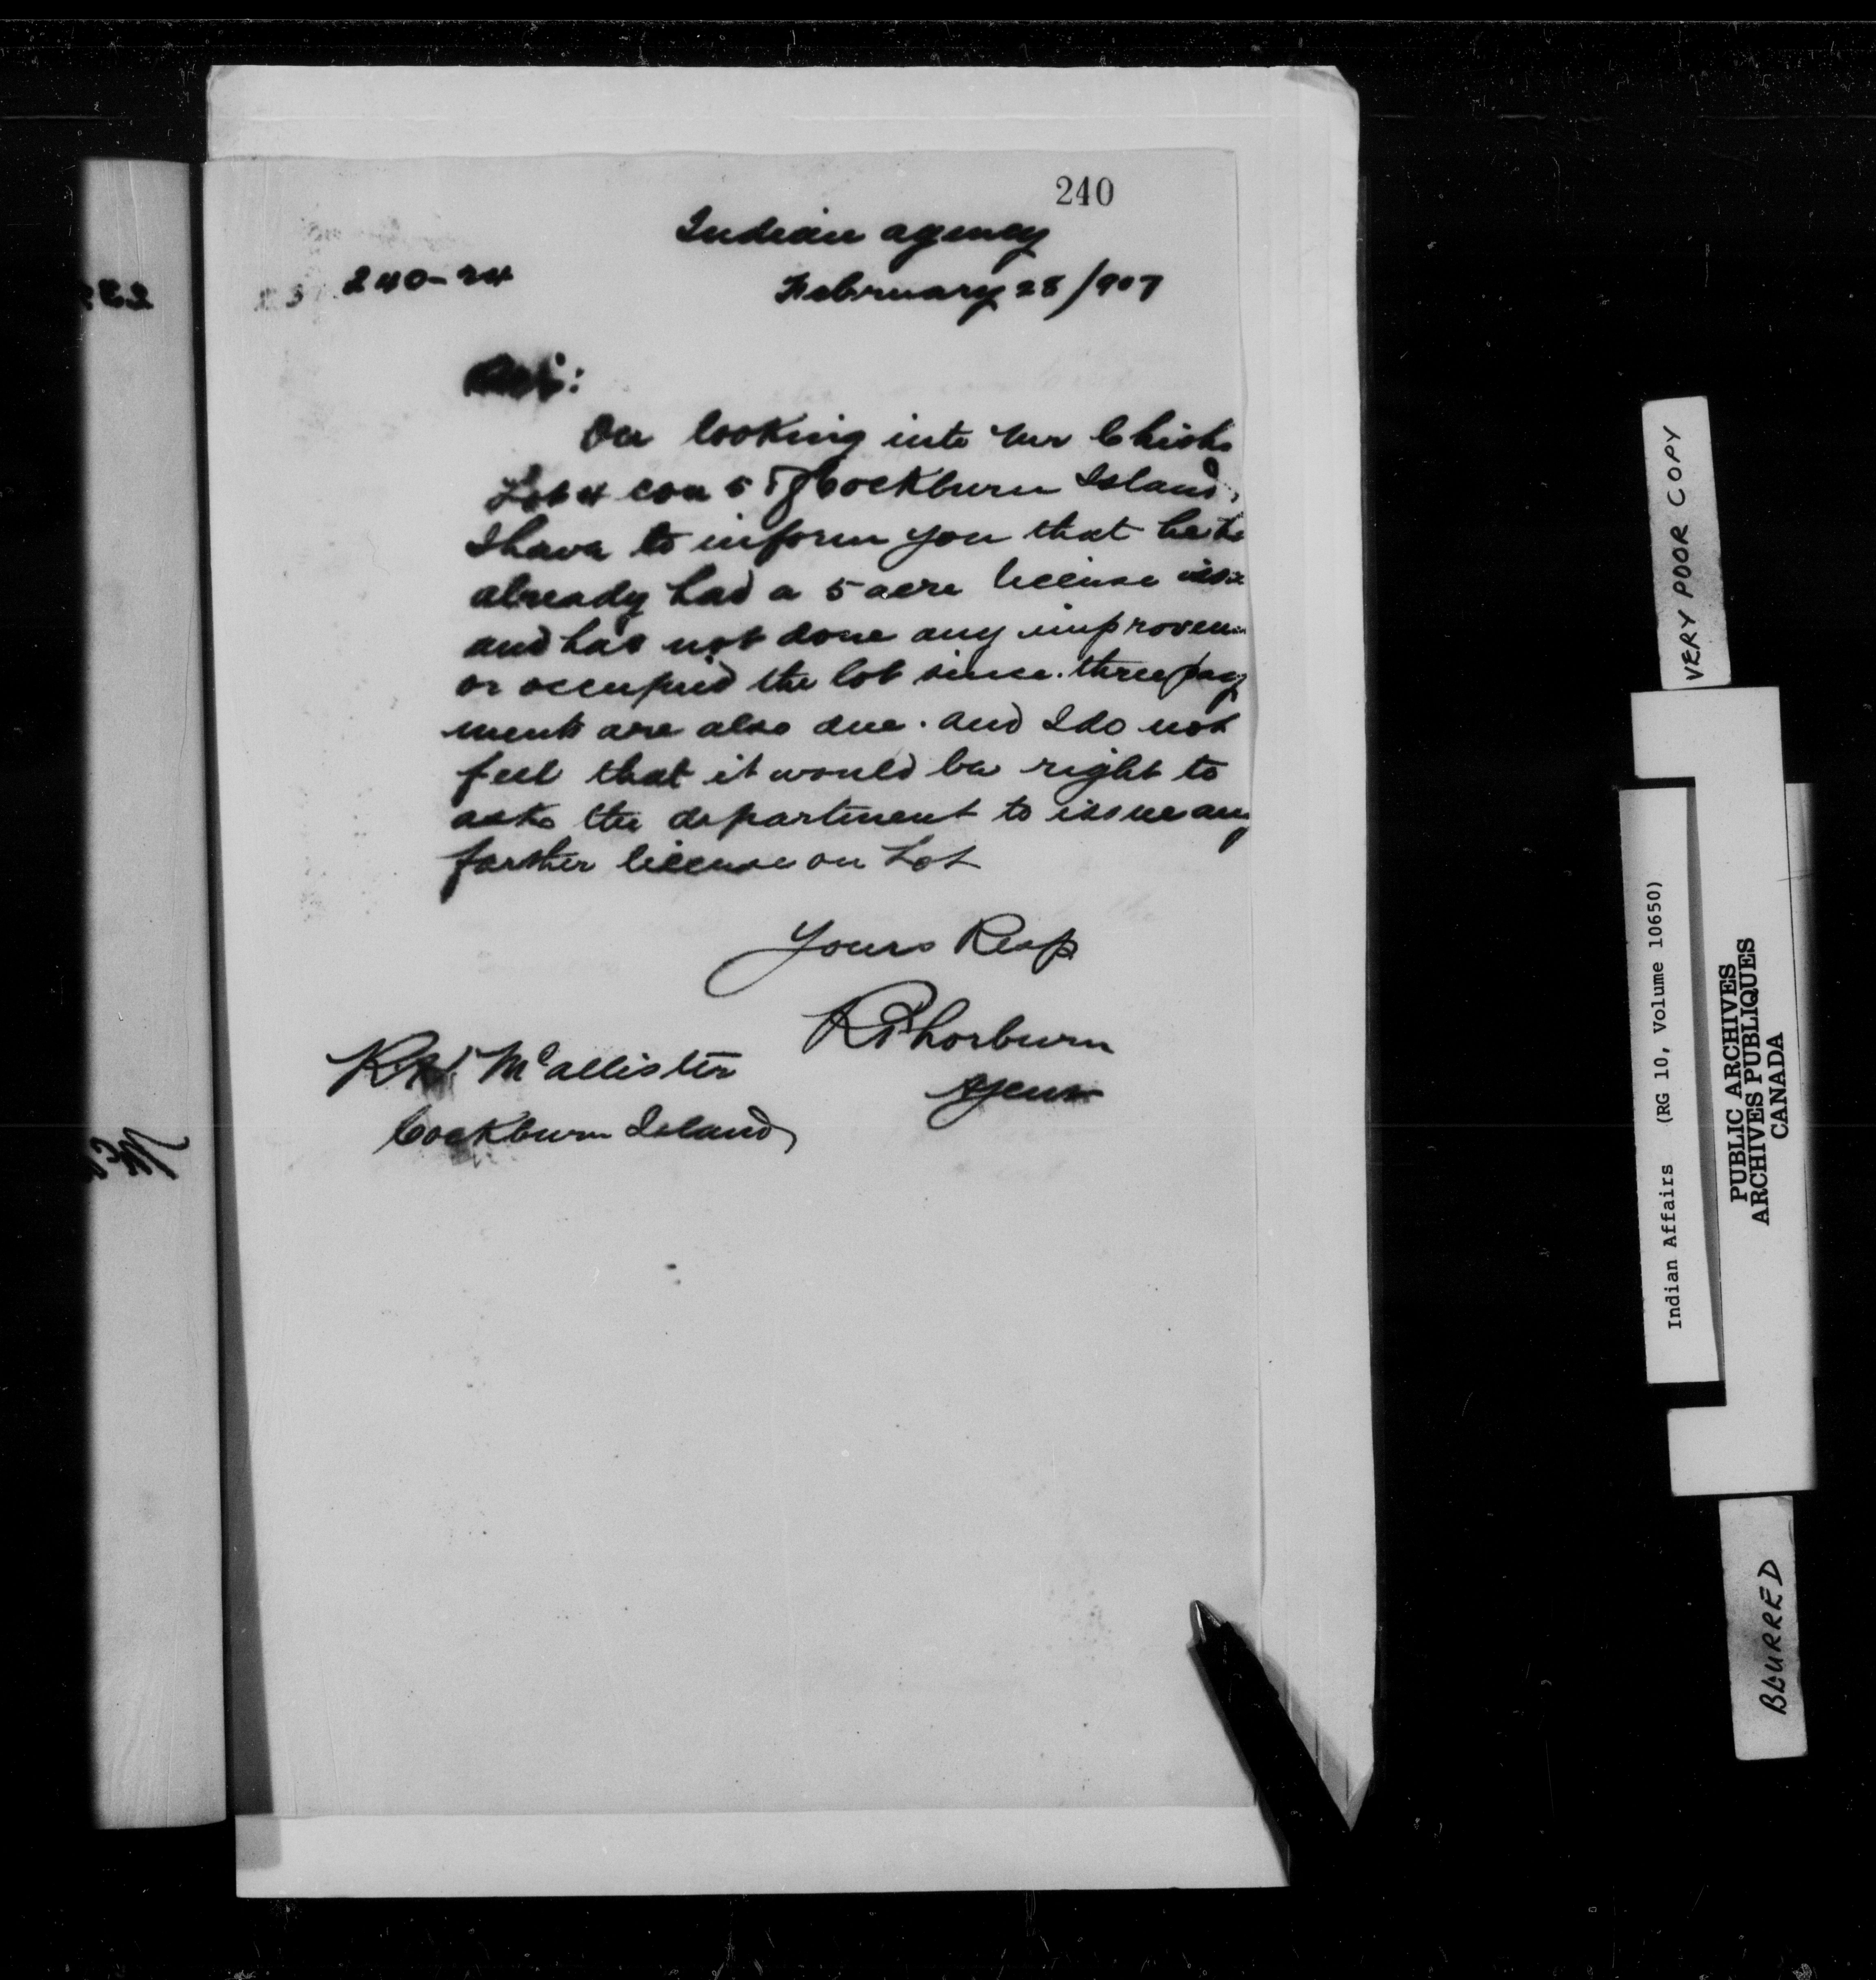 240
Indian agency
240-24
February 28/907
Sir:
On looking into Mr Chisho
Lot 4 con 5 of Cockburn Island,
I have to inform you that he ha
already had a 5 acre license
and has not done any improvem
or occupied the lot since. three pay
ments are also due. and I do not
feel that it would be right to
ask the department to issue any
farther license on Lot
Yours Resp
R Thorburn
Agent
McAllister
Cockburn Island,
VERY POOR COPY
Indian Affairs (RG 10, Volume 10650)
PUBLIC ARCHIVES
ARCHIVES PUBLIQUES
CANADA
BLURRED